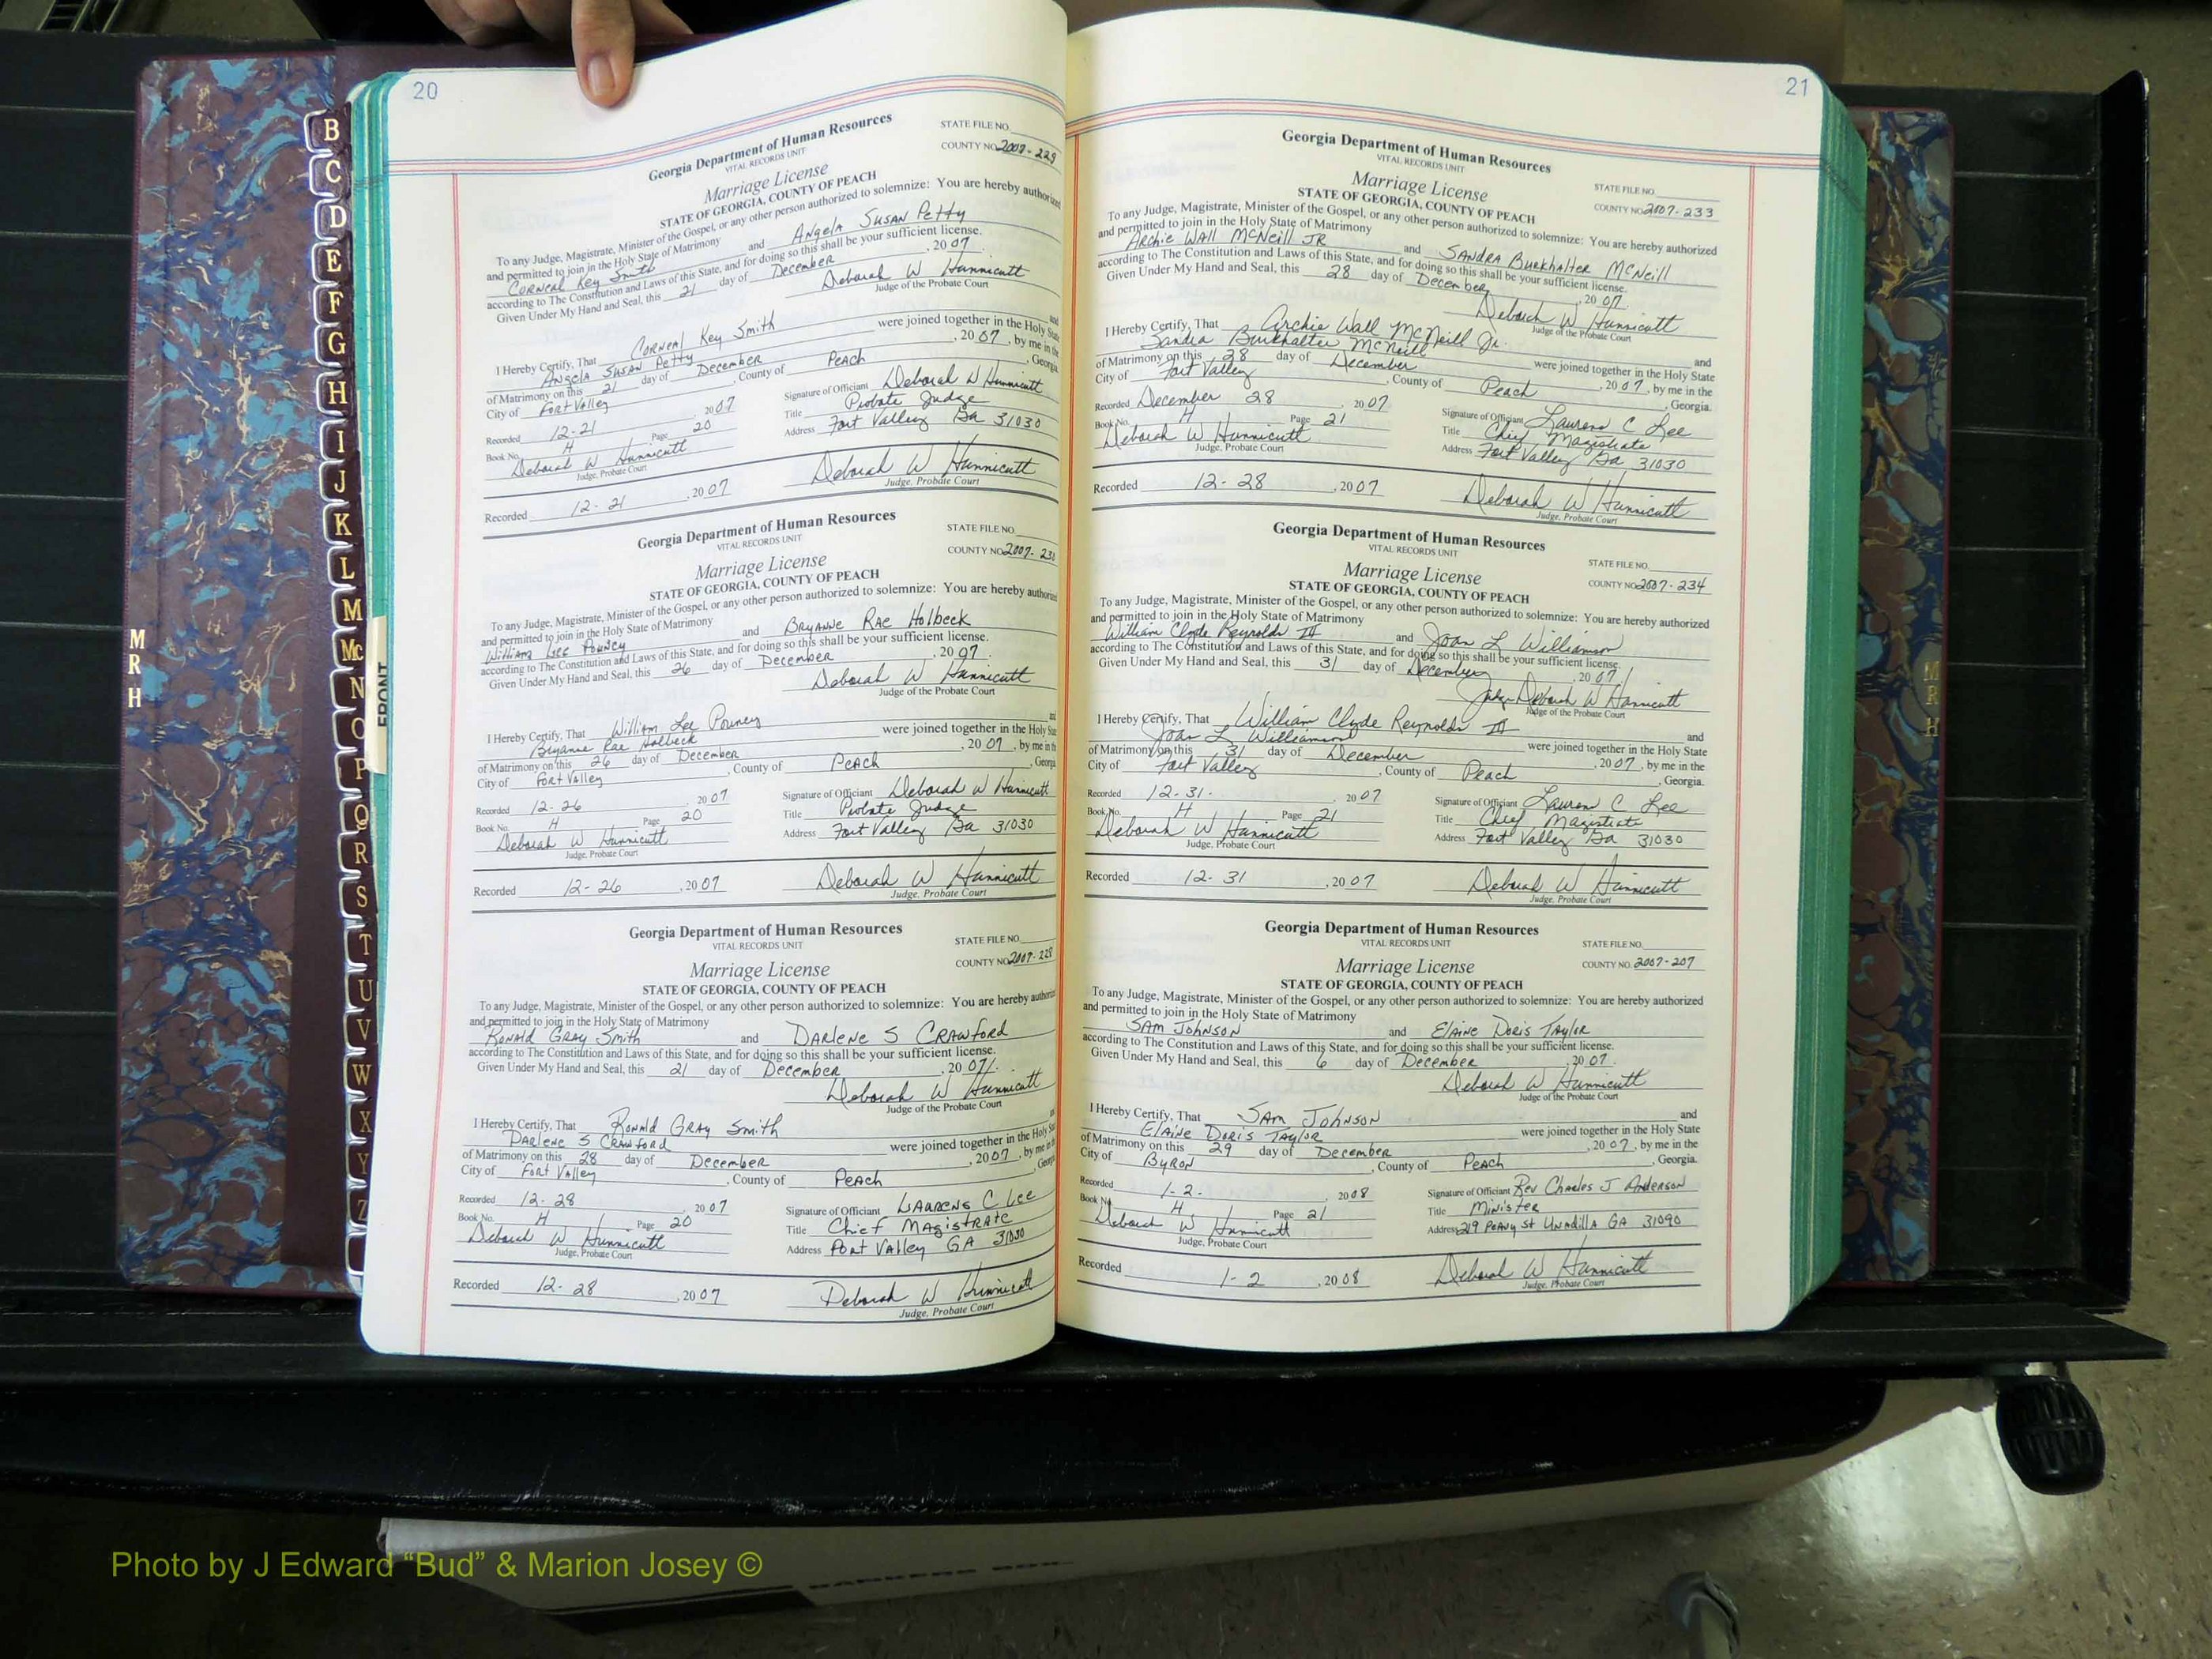 20
Georgia Department of Human Resources
VITAL RECORDS UNIT
STATE FILE NO.
COUNTY NO. 2007-229
Marriage License
STATE OF GEORGIA, COUNTY OF PEACH
To any Judge, Magistrate, Minister of the Gospel, or any other person authorized to solemnize: You are hereby authorized
and permitted to join in the Holy State of Matrimony
Corneal Key Smith and Angela Susan Petty
according to The Constitution and Laws of this State, and for doing so this shall be your sufficient license.
Given Under My Hand and Seal, this 21 day of December, 2007
Deborah W Hunnicutt
Judge of the Probate Court
I Hereby Certify, That Corneal Key Smith and
Angela Susan Petty were joined together in the Holy State
of Matrimony on this 21 day of December, 2007, by me in the
City of Fort Valley, County of Peach, Georgia.
Recorded 12-21 2007
Book No. H Page 20
Deborah W Hunnicutt
Judge, Probate Court
Signature of Officiant Deborah W Hunnicutt
Title Probate Judge
Address Fort Valley Ga 31030
Recorded 12-21, 2007
Deborah W Hunnicutt
Judge, Probate Court
Georgia Department of Human Resources
VITAL RECORDS UNIT
STATE FILE NO.
COUNTY NO. 2007-23
Marriage License
STATE OF GEORGIA, COUNTY OF PEACH
To any Judge, Magistrate, Minister of the Gospel, or any other person authorized to solemnize: You are hereby authorized
and permitted to join in the Holy State of Matrimony
William Lee Pouncy and Bryanne Rae Holbeck
according to The Constitution and Laws of this State, and for doing so this shall be your sufficient license.
Given Under My Hand and Seal, this 26 day of December, 2007
Deborah W Hunnicutt
Judge of the Probate Court
I Hereby Certify, That William Lee Pouncy and
Bryanne Rae Holbeck were joined together in the Holy State
of Matrimony on this 26 day of December, 2007, by me in the
City of Fort Valley, County of Peach, Georgia
Recorded 12-26 2007
Book No. H Page 20
Deborah W Hunnicutt
Judge, Probate Court
Signature of Officiant Deborah W Hunnicutt
Title Probate Judge
Address Fort Valley Ga 31030
Recorded 12-26, 2007
Deborah W Hunnicutt
Judge, Probate Court
Georgia Department of Human Resources
VITAL RECORDS UNIT
STATE FILE NO.
COUNTY NO. 2007-228
Marriage License
STATE OF GEORGIA, COUNTY OF PEACH
To any Judge, Magistrate, Minister of the Gospel, or any other person authorized to solemnize: You are hereby authorized
and permitted to join in the Holy State of Matrimony
Ronald Gray Smith and Darlene S Crawford
according to The Constitution and Laws of this State, and for doing so this shall be your sufficient license.
Given Under My Hand and Seal, this 21 day of December, 2007.
Deborah W Hunnicutt
Judge of the Probate Court
I Hereby Certify, That Ronald Gray Smith and
Darlene S Crawford were joined together in the Holy State
of Matrimony on this 28 day of December, 2007, by me in the
City of Fort Valley, County of Peach, Georgia
Recorded 12-28 2007
Book No. H Page 20
Deborah W Hunnicutt
Judge, Probate Court
Signature of Officiant Laurens C Lee
Title Chief Magistrate
Address Fort Valley GA 31030
Recorded 12-28, 2007
Deborah W Hunnicutt
Judge, Probate Court
21
Georgia Department of Human Resources
VITAL RECORDS UNIT
STATE FILE NO.
COUNTY NO. 2007-233
Marriage License
STATE OF GEORGIA, COUNTY OF PEACH
To any Judge, Magistrate, Minister of the Gospel, or any other person authorized to solemnize: You are hereby authorized
and permitted to join in the Holy State of Matrimony
Archie Wall McNeill JR and Sandra Burkhalter McNeill
according to The Constitution and Laws of this State, and for doing so this shall be your sufficient license.
Given Under My Hand and Seal, this 28 day of December, 2007.
Deborah W Hunnicutt
Judge of the Probate Court
I Hereby Certify, That Archie Wall McNeill Jr. and
Sandra Burkhalter McNeill were joined together in the Holy State
of Matrimony on this 28 day of December, 2007, by me in the
City of Fort Valley, County of Peach, Georgia.
Recorded December 28, 2007
Book No. H Page 21
Deborah W Hunnicutt
Judge, Probate Court
Signature of Officiant Laurens C Lee
Title Chief Magistrate
Address Fort Valley Ga 31030
Recorded 12-28, 2007
Deborah W Hunnicutt
Judge, Probate Court
Georgia Department of Human Resources
VITAL RECORDS UNIT
STATE FILE NO.
COUNTY NO. 2007-234
Marriage License
STATE OF GEORGIA, COUNTY OF PEACH
To any Judge, Magistrate, Minister of the Gospel, or any other person authorized to solemnize: You are hereby authorized
and permitted to join in the Holy State of Matrimony
William Clyde Reynolds III and Joan L Williamson
according to The Constitution and Laws of this State, and for doing so this shall be your sufficient license.
Given Under My Hand and Seal, this 31 day of December, 2007
Judge Deborah W Hunnicutt
Judge of the Probate Court
I Hereby Certify, That William Clyde Reynolds III and
Joan L Williamson were joined together in the Holy State
of Matrimony on this 31 day of December, 2007, by me in the
City of Fort Valley, County of Peach, Georgia.
Recorded 12-31- 2007
Book No. H Page 21
Deborah W Hunnicutt
Judge, Probate Court
Signature of Officiant Laurens C Lee
Title Chief Magistrate
Address Fort Valley Ga 31030
Recorded 12-31, 2007
Deborah W Hunnicutt
Judge, Probate Court
Georgia Department of Human Resources
VITAL RECORDS UNIT
STATE FILE NO.
COUNTY NO. 2007-207
Marriage License
STATE OF GEORGIA, COUNTY OF PEACH
To any Judge, Magistrate, Minister of the Gospel, or any other person authorized to solemnize: You are hereby authorized
and permitted to join in the Holy State of Matrimony
Sam Johnson and Elaine Doris Taylor
according to The Constitution and Laws of this State, and for doing so this shall be your sufficient license.
Given Under My Hand and Seal, this 6 day of December, 2007.
Deborah W Hunnicutt
Judge of the Probate Court
I Hereby Certify, That Sam Johnson and
Elaine Doris Taylor were joined together in the Holy State
of Matrimony on this 29 day of December, 2007, by me in the
City of Byron, County of Peach, Georgia.
Recorded 1-2-, 2008
Book No. H Page 21
Deborah W Hunnicutt
Judge, Probate Court
Signature of Officiant Rev Charles J Anderson
Title Minister
Address 219 Peavy St Unadilla GA 31090
Recorded 1-2, 2008
Deborah W Hunnicutt
Judge, Probate Court
B
C
D
E
F
G
H
I
J
K
L
M
Mc
N
O
P
Q
R
S
T
U
V
W
X
Y
Z
FRONT
M
R
H
M
R
H
Photo by J Edward “Bud” & Marion Josey ©